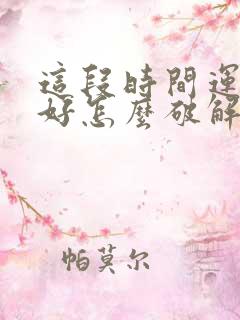 這段時間運
好怎麼破解
帕莫尔